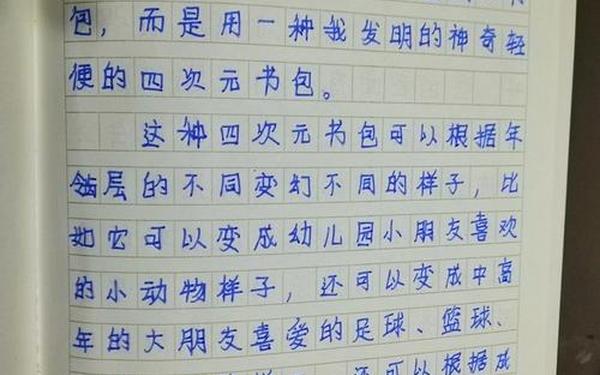 包，而是用一种我发明的神奇轻
便的四次元书包。
这种四次元书包可以根据年
龄层的不同变幻不同的样子，比
如它可以变成幼儿园小朋友喜欢
的小动物样子，还可以变成中高
年的大朋友喜爱的足球、篮球、
还可以根据成